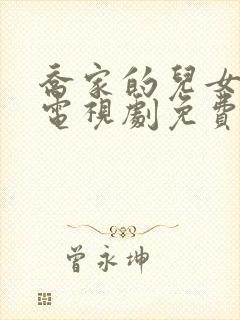 喬家的兒女
電視劇免費
曾永坤